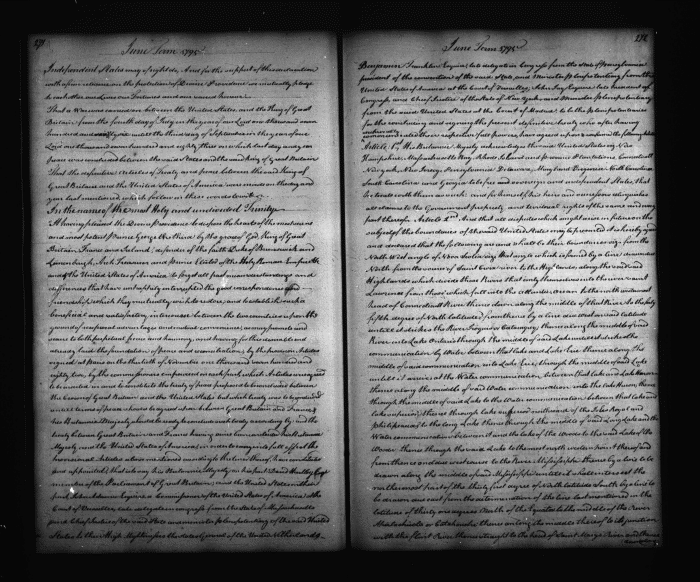 June Term 1795
Independent States may of right do. And for the support of this declaration
with a firm reliance on the protection of Divine Providence we mutually pledge
to each other our Lives our Fortunes and our sacred honor.
That a War was carried on between the United States and the King of Great
Britain from the fourth day of July in the year of our Lord one thousand seven
hundred and seventy six untill the third day of September in the year of our
Lord one thousand seven hundred and eighty three on which last day
peace was concluded between the said States and the said King of Great Britain
That the definitive Articles of Treaty and peace between the said King of
Great Britain and the United States of America were made on the day and
year last mentioned, which follow in these words to wit
In the name of the most Holy and undivided Trinity.
It having pleased the Divine Providence to dispose the hearts of the most serene
and most potent Prince George the third by the grace of God King of Great
Britain, France and Ireland, defender of the faith Duke of Brunswick and
Lunenburg, Arch Treasurer and Prince Elector of the Holy Roman Empire &c
and of the United States of America to forget all past misunderstandings and
differences that have unhappily interrupted the good correspondence and
friendship which they mutually wish to restore, and to establish such a
beneficial and satisfactory intercourse between the two countries upon the
ground of reciprocal advantages and mutual convenience as may promote and
secure to both perpetual peace and harmony, and having for this desirable end
already laid the foundation of peace and reconciliation, by the provision Articles
signed at Paris on the thirtieth of November one thousand seven hundred and
eighty two, by the commissioners empowered on each part, which Articles were agreed
to be inserted in and to constitute the treaty of peace proposed to be concluded between
the Crown of Great Britain and the United States but which treaty was not to be concluded
untill terms of peace should be agreed upon between Great Britain and France, &
his Britannic Majesty should be ready to conclude such treaty accordingly and the
treaty between Great Britain and France having since been concluded his Britannic
Majesty and the United States of America in order to carry into full effect the
provisional Articles above mentioned according to the tenor thereof, have constituted
and appointed, that is to say his Britannic Majesty on his part David Hartley Esqr
member of the Parliament of Great Britain; and the United States on their
part John Adams Esquire a Commissioner of the United States of America at the
Court of Versailles, late delegate in congress from the State of Massachusetts
and chief Justice of the said State and minister plenipotentiary of the said United
States to their High Mightinesses the States General of the United Netherlands
June Term 1795
Benjamin Franklin Esquire late delegate in Congress from the State of Pennsylvania
president of the convention of the said State, and Minister plenipotentiary from the
United States of America at the Court of Versailles; John Jay Esquire late president of
Congress and Chief Justice of the State of New York and Minister plenipotentiary
from the said United States at the Court of Madrid to be the plenipotentiaries
for the concluding and signing the present definitive treaty who after having
communicated their respective full powers have agreed upon & confirmed the following Articles
Article 1st His Britannic Majesty acknowledges the said United States viz New
Hampshire, Massachusetts Bay, Rhode Island and Providence Plantations, Connecticut
New York, New Jersey, Pennsylvania, Delaware, Maryland, Virginia, North Carolina
South Carolina and Georgia to be free and sovereign and independent States, that
he treats with them as such and for himself his heirs and successors relinquishes
all claims to the Government property and territorial rights of the same and every
part thereof. Article 2nd And that all disputes which might arise in future on the
subject of the boundaries of the said United States may be prevented it is hereby agreed
and declared that the following are and shall be their boundaries viz from the
North West angle of Nova Scotia viz that angle which is formed by a line drawn due
North from the source of Saint Croix river to the Highlands, along the said
Highlands which divide those Rivers that empty themselves into the river Saint
Lawrence from those which fall into the Atlantic ocean to the northwesternmost
head of Connecticut River thence down along the middle of that River to the forty
fifth degree of North latitude; from thence by a line due west on said latitude
untill it strikes the River Iroquois or Cataraquy thence along the middle of said
River into Lake Ontario through the middle of said Lake untill it strikes the
communication by Water between that lake and Lake Erie; thence along the
middle of said communication into Lake Erie, through the middle of said Lake
untill it arrives at the Water communication between that lake and Lake Huron
thence along the middle of said Water communication into the lake Huron, thence
through the middle of said Lake to the Water communication between that lake and
Lake Superior; thence through lake Superior northward of the Isles Royal and
philipeaux to the long Lake thence through the middle of said Long Lake and the
Water communication between it and the lake of the Woods to the said Lake of the
Woods thence through the said Lake to the most north western point thereof and
from thence on a due west course to the River Mississippi thence by a line to be
drawn along the middle of said Mississippi untill it shall intersect the
northernmost part of the thirty first degree of North latitude South by a line to
be drawn due east from the determination of the line last mentioned in the
latitude of thirty one degrees North of the Equator to the middle of the River
Apalachicola or Catahouche thence along the middle thereof to its junction
with the flint River thence straight to the head of Saint Marys River and thence